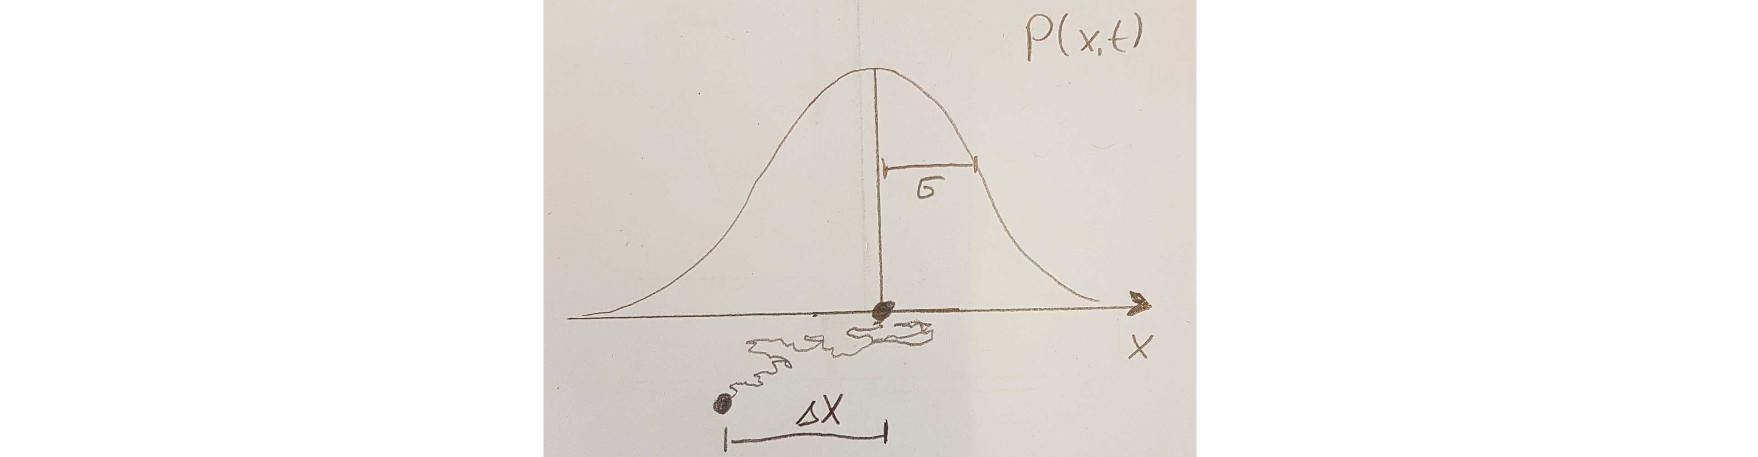 P(x,t)
σ
x
ΔX